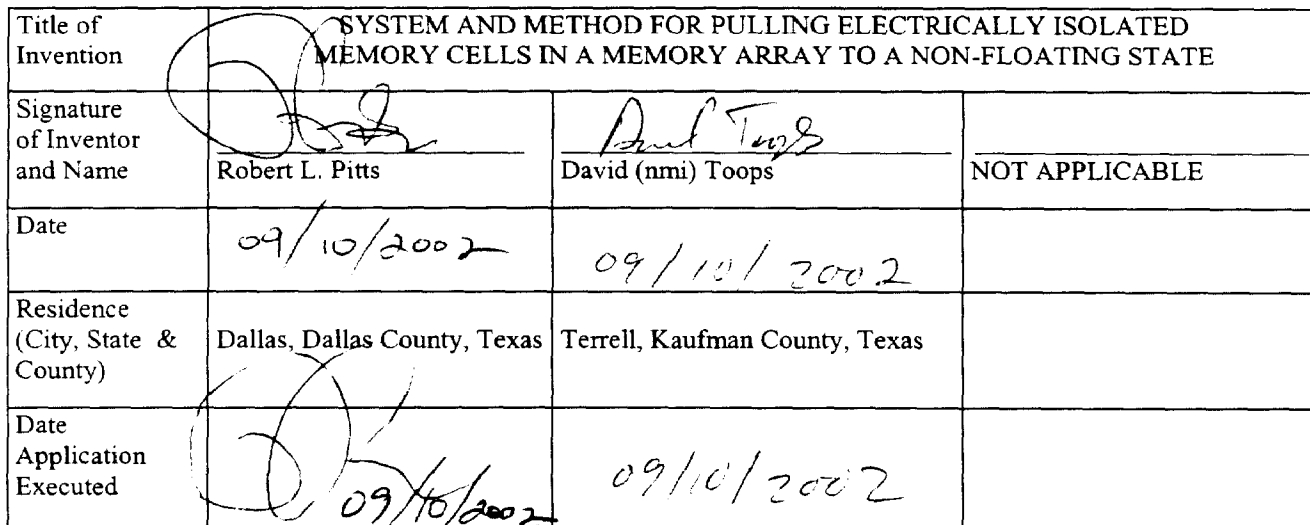 Title of
Invention
SYSTEM AND METHOD FOR PULLING ELECTRICALLY ISOLATED
MEMORY CELLS IN A MEMORY ARRAY TO A NON-FLOATING STATE
Signature
of Inventor
and Name
Robert L. Pitts
David Toops
David (nmi) Toops
NOT APPLICABLE
Date
09/10/2002
09/10/2002
Residence
(City, State &
County)
Dallas, Dallas County, Texas
Terrell, Kaufman County, Texas
Date
Application
Executed
09/10/2002
09/10/2002